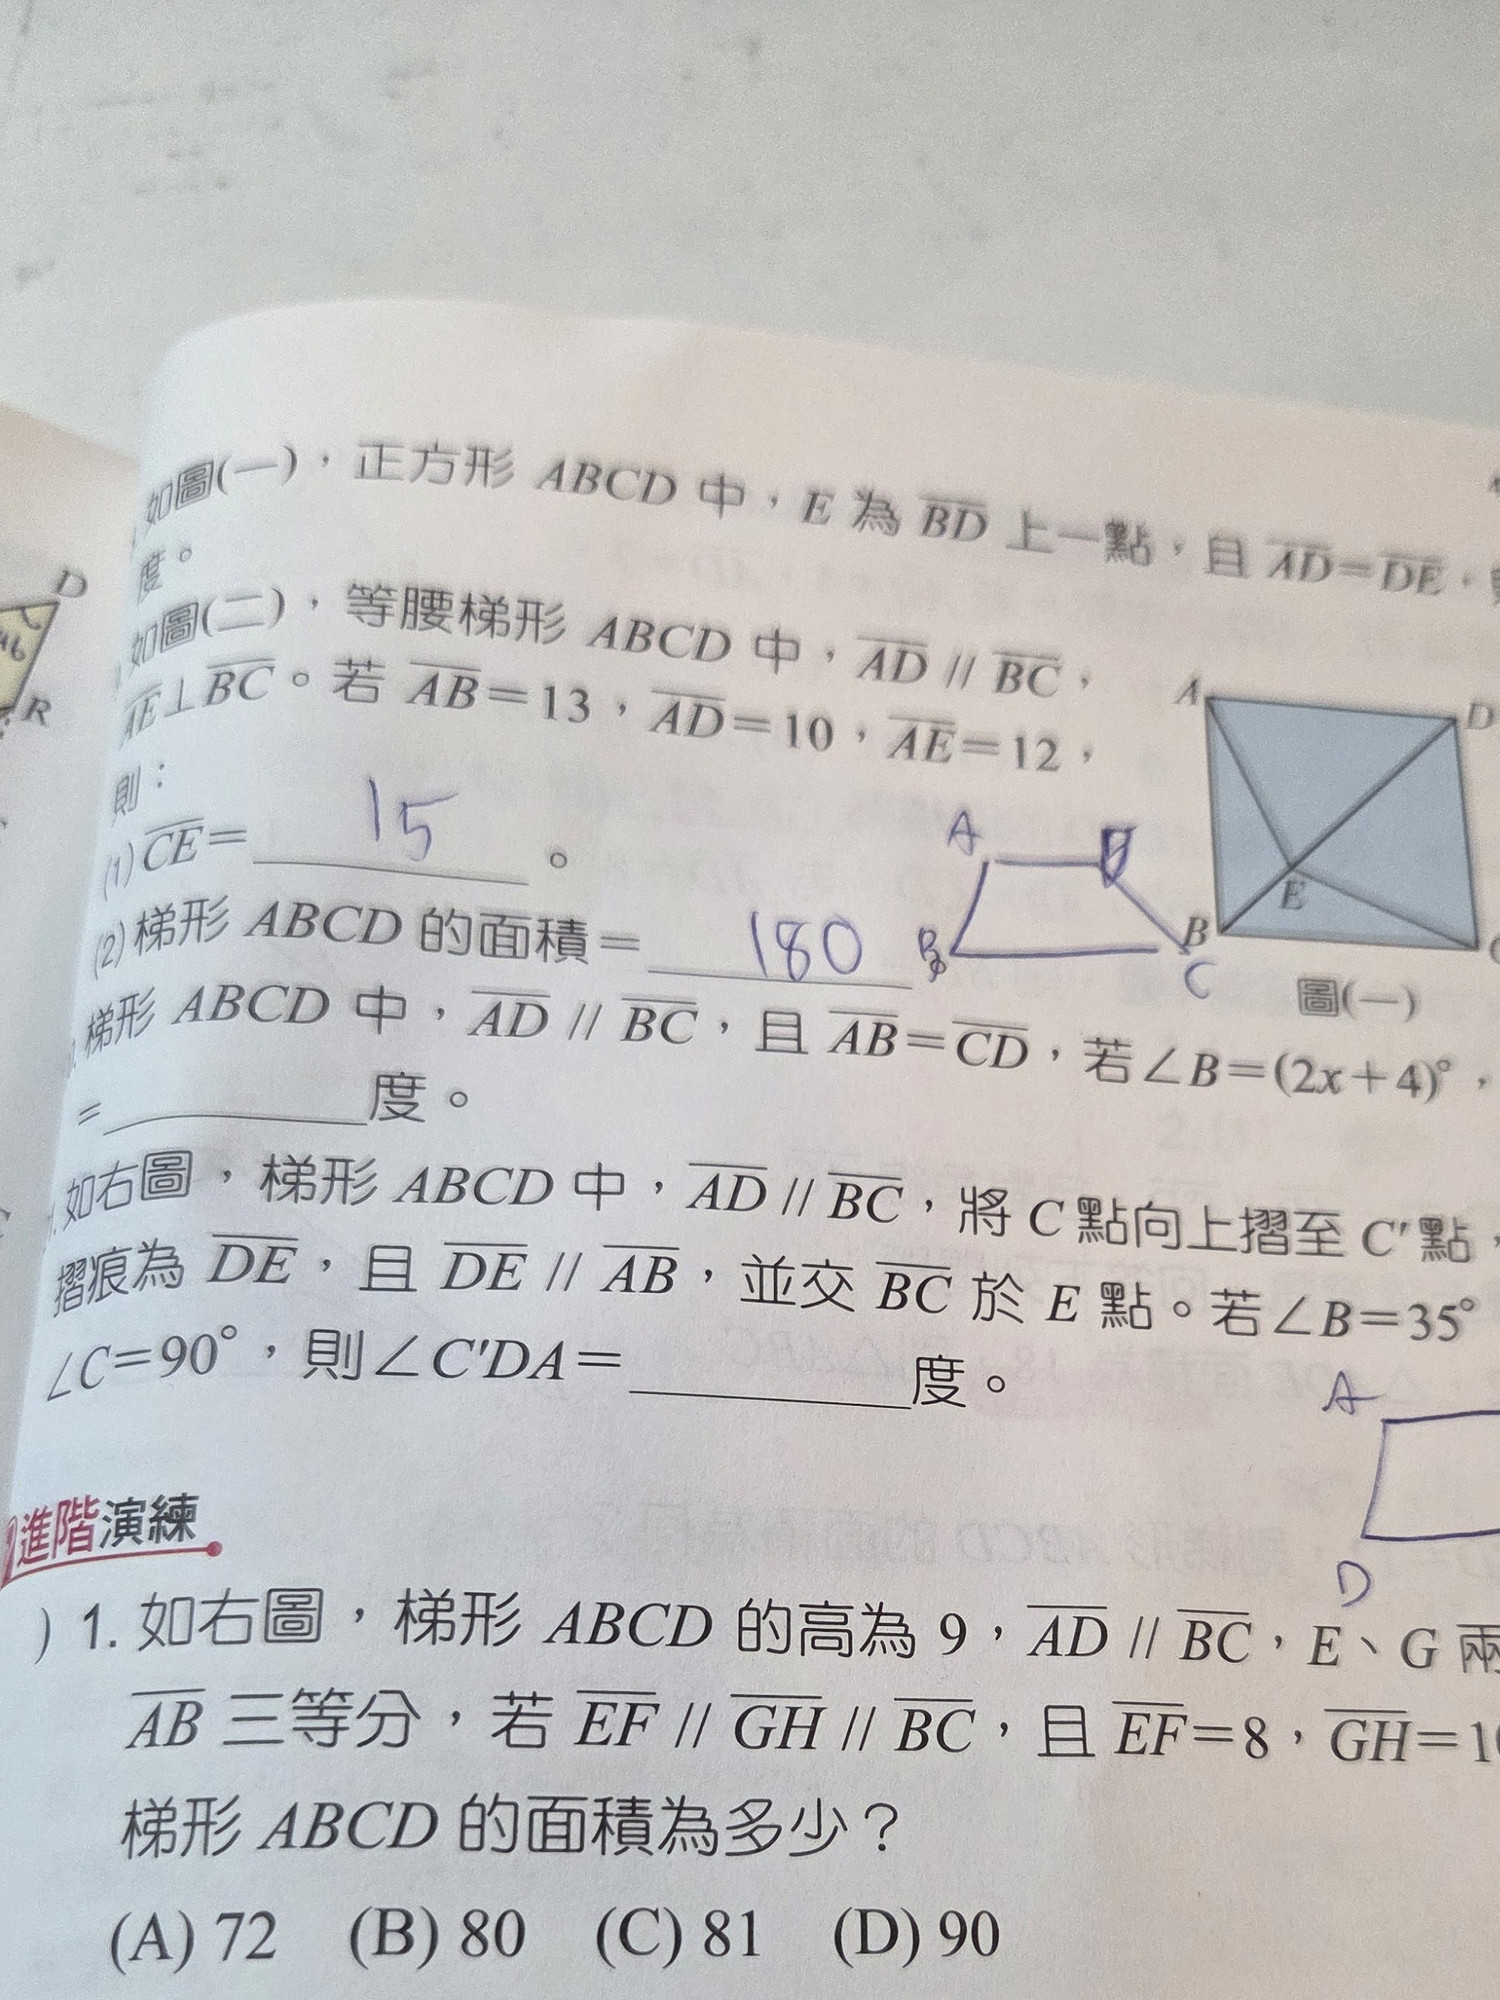 D
46
R
如圖(一)，正方形 ABCD 中，E 為 BD 上一點，且 AD=DE，
度。
如圖(二)，等腰梯形 ABCD 中，AD // BC，
AE⊥BC。若 AB=13，AD=10，AE=12，
則：
(1) CE= 15 。
(2) 梯形 ABCD 的面積= 180
A
B
C
A
D
B
E
圖(一)
梯形 ABCD 中，AD // BC，且 AB=CD，若∠B=(2x+4)°，
= 度。
如右圖，梯形 ABCD 中，AD // BC，將 C 點向上摺至 C' 點，
摺痕為 DE，且 DE // AB，並交 BC 於 E 點。若∠B=35°
∠C=90°，則∠C'DA= 度。
A
D
進階演練
) 1. 如右圖，梯形 ABCD 的高為 9，AD // BC，E、G 兩
AB 三等分，若 EF // GH // BC，且 EF=8，GH=10
梯形 ABCD 的面積為多少？
(A) 72 (B) 80 (C) 81 (D) 90